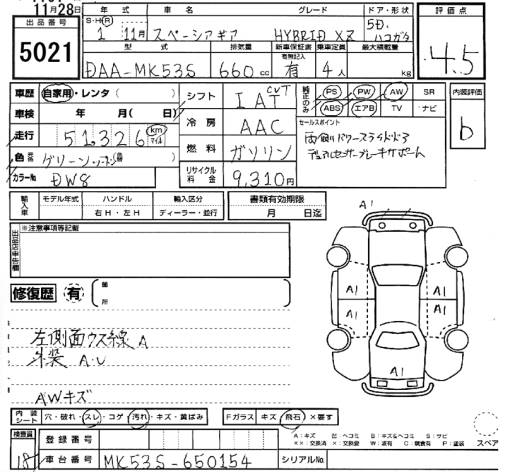 11月28日
出品番号
5021
年式 車名 グレード ドア・形状 評価点
S・H・R 1年 11月 スペーシアギア HYBRID XZ 5D. ハコガタ 4.5
型式 排気量 新車保証書 乗車定員 最大積載量
有無記入
DAA-MK53S 660cc 有 4人 kg
車歴 自家用・レンタ( )
車検 年 月( 日)
走行 51,326 km マイル
色 グリーン・
カラーNo. DW8
シフト IAT CVT
冷房 AAC
燃料 ガソリン
リサイクル料金 9,310円
純正のみ PS PW AW SR
ABS エアB TV ナビ
内装評価 b
セールスポイント
両側パワースライドドア
デュアルセンサーブレーキサポート
輸入車 モデル年式 ハンドル 輸入区分
右H・左H ディーラー・並行
書類有効期限
月 日迄
※注意事項等記載
修復歴 有 箇所
左側面ウス線 A
外装 A・U
AWキズ
A1
A1
A1
A1
A1
A1
内装シート 穴・破れ・スレ・コゲ・汚れ・キズ・黄ばみ
Fガラス キズ・飛石・×要す
A：キズ E：ヘコミ B：キズ&ヘコミ S：サビ
××：交換済 ×：交換要 W：波有 C：腐食有 P：塗装
スペア
検査員
登録番号
車台番号 MK53S-650154
シリアルNo.